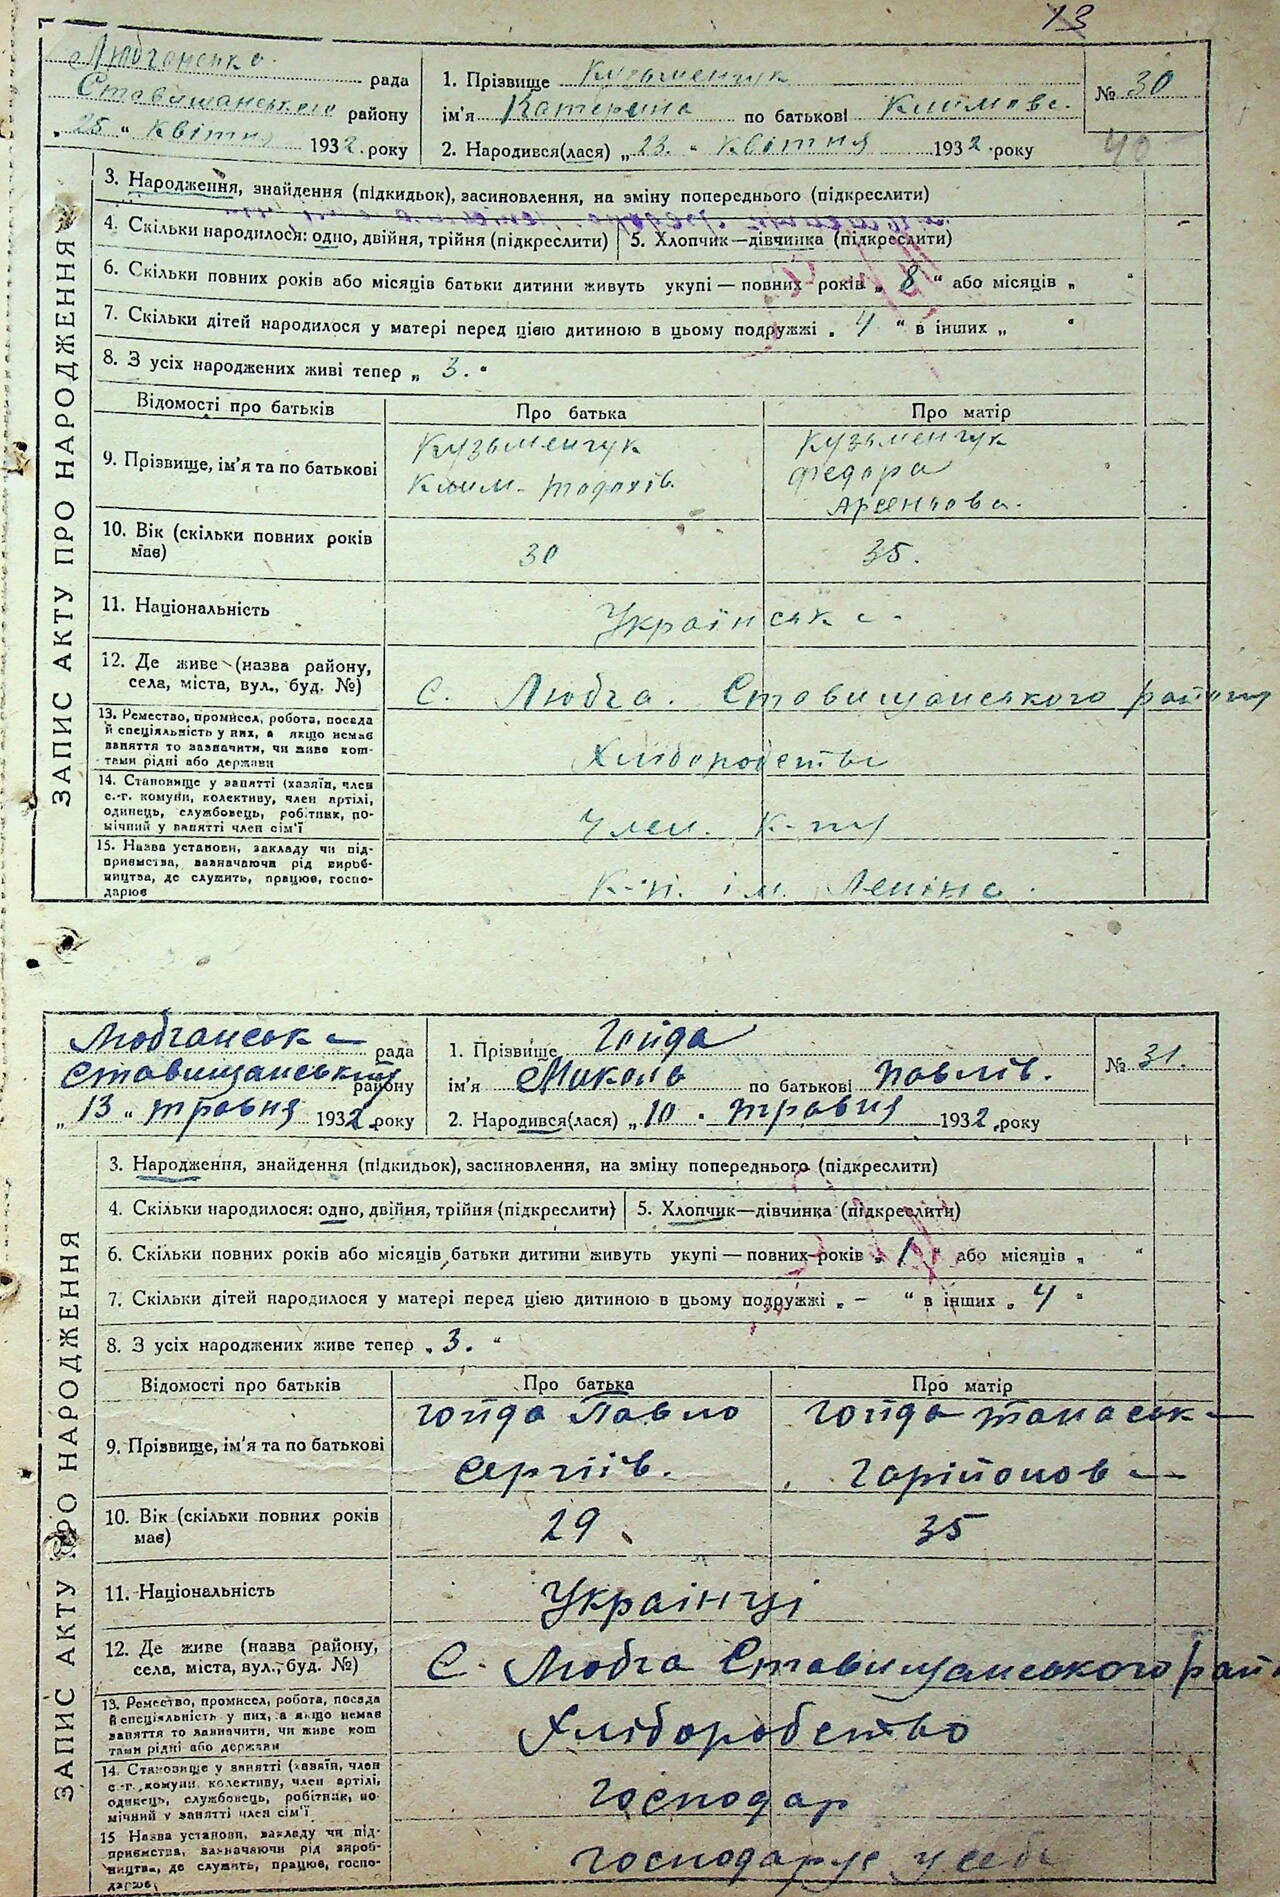 13
Любчанська рада
Ставищанського району
„ 25 “ квітня 1932 року
1. Прізвище Кузьменчук
ім'я Катерина по батькові Климова.
2. Народився(лася) „ 23. “ квітня 1932 року
№ 30
40
3. Народження, знайдення (підкидьок), засиновлення, на зміну попереднього (підкреслити)
4. Скільки народилося: одно, двійня, трійня (підкреслити)
5. Хлопчик—дівчинка (підкреслити)
6. Скільки повних років або місяців батьки дитини живуть укупі — повних років „ 8 “ або місяців „ “
7. Скільки дітей народилося у матері перед цією дитиною в цьому подружжі „ 4 “ в інших „ “
8. З усіх народжених живі тепер „ 3. “
Відомості про батьків
Про батька
Про матір
9. Прізвище, ім'я та по батькові
Кузьменчук
Клим.
Кузьменчук
Федора
Арсентова.
10. Вік (скільки повних років
має)
30
35.
11. Національність
Українська.
12. Де живе (назва району,
села, міста, вул., буд. №)
С. Любча. Ставищанського району
13. Ремество, промисел, робота, посада
й спеціяльність у них, а якщо немає
заняття то зазначити, чи живе кош-
тами рідні або держави
Хліборобство
14. Становище у занятті (хазяїн, член
с.-г. комуни, колективу, член артілі,
одинець, службовець, робітник, по-
мічний у занятті член сім'ї
Член. к-ту
15. Назва установи, закладу чи під-
приємства, зазначаючи рід вироб-
ництва, де служить, працює, госпо-
дарює
К-п. ім. Леніна.
ЗАПИС АКТУ ПРО НАРОДЖЕННЯ
Любчанська рада
Ставищанський району
„ 13 “ травня 1932 року
1. Прізвище Гойда
ім'я Микола по батькові Павлів.
2. Народився(лася) „ 10 “ травня 1932 року
№ 31.
3. Народження, знайдення (підкидьок), засиновлення, на зміну попереднього (підкреслити)
4. Скільки народилося: одно, двійня, трійня (підкреслити)
5. Хлопчик—дівчинка (підкреслити)
6. Скільки повних років або місяців батьки дитини живуть укупі — повних років „ 1 “ або місяців „ “
7. Скільки дітей народилося у матері перед цією дитиною в цьому подружжі „ — “ в інших „ 4 “
8. З усіх народжених живе тепер „ 3. “
Відомості про батьків
Про батька
Про матір
9. Прізвище, ім'я та по батькові
Гойда Павло
Сергіїв.
Гойда Танаська
Гарійонова
10. Вік (скільки повних років
має)
29
35
11. Національність
Українці
12. Де живе (назва району,
села, міста, вул., буд. №)
С. Любча Ставищанського рай
13. Ремество, промисел, робота, посада
й спеціяльність у них, а якщо немає
заняття то зазначити, чи живе кош
тами рідні або держави
Хліборобство
14. Становище у занятті (хазяїн, член
с.-г. комуни, колективу, член артілі,
одинець, службовець, робітник, по-
мічний у занятті член сім'ї
Господар
15 Назва установи, закладу чи під-
приємства, зазначаючи рід вироб-
ництва, де служить, працює, госпо-
дарює
господарує у себе
ЗАПИС АКТУ ПРО НАРОДЖЕННЯ